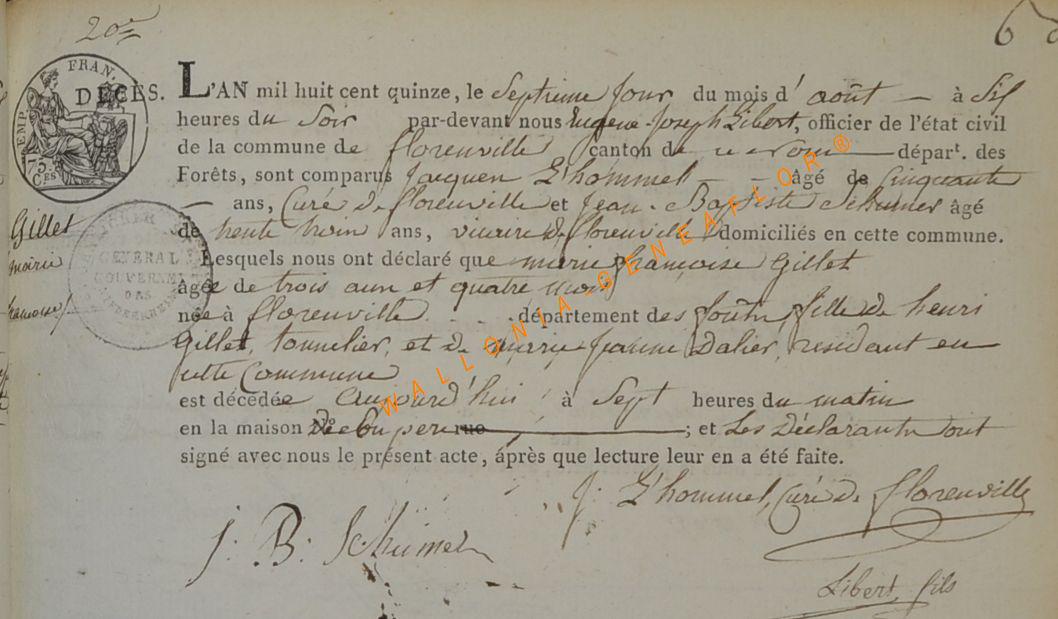 20e
6
DÉCÈS. L'AN mil huit cent quinze, le Septieme Jour du mois d' août — à Six
heures du Soir par-devant nous Eugene Joseph Libert, officier de l'état civil
de la commune de florenville canton de — départ. des
Forêts, sont comparus Jacques L'hommel — âgé de Cinquante
— ans, Curé de florenville et Jean-Baptiste Schumer âgé
de trente trois ans, vicaire de florenville domiciliés en cette commune.
Lesquels nous ont déclaré que marie françoise Gillet
âgée de trois ans et quatre mois
née à florenville département des forêts, fille de henri
Gillet, tonnelier, et de marie Jeanne Dalier, residant en
cette Commune
est décédée aujourd'hui à Sept heures du matin
en la maison de son pere rue ; et Les Déclarants ont
signé avec nous le présent acte, après que lecture leur en a été faite.
J: L'hommel, Curé de florenville
J: B: Schumer
Libert, fils
Gillet
marie
FRAN.
EMP.
75
CES
GENERAL
GOUVERNEMENT
DAS
WALLONIA-GENEAFLOR®